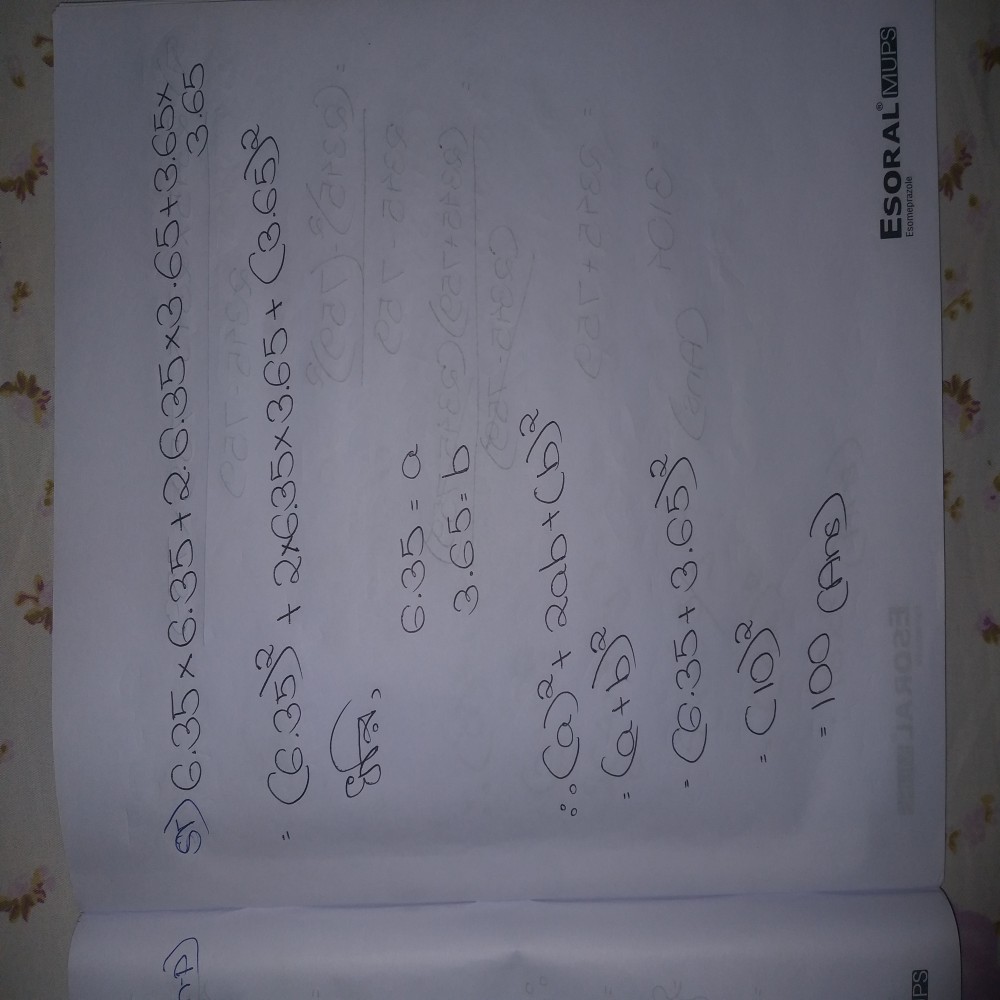 ভ) 6.35 × 6.35 + 2.6.35 × 3.65 + 3.65 ×
3.65
= (6.35)² + 2×6.35×3.65 + (3.65)²
ধরি,
6.35 = a
3.65 = b
∴ (a)² + 2ab + (b)²
= (a+b)²
= (6.35 + 3.65)²
= (10)²
= 100 (Ans)
ESORAL® MUPS
Esomeprazole